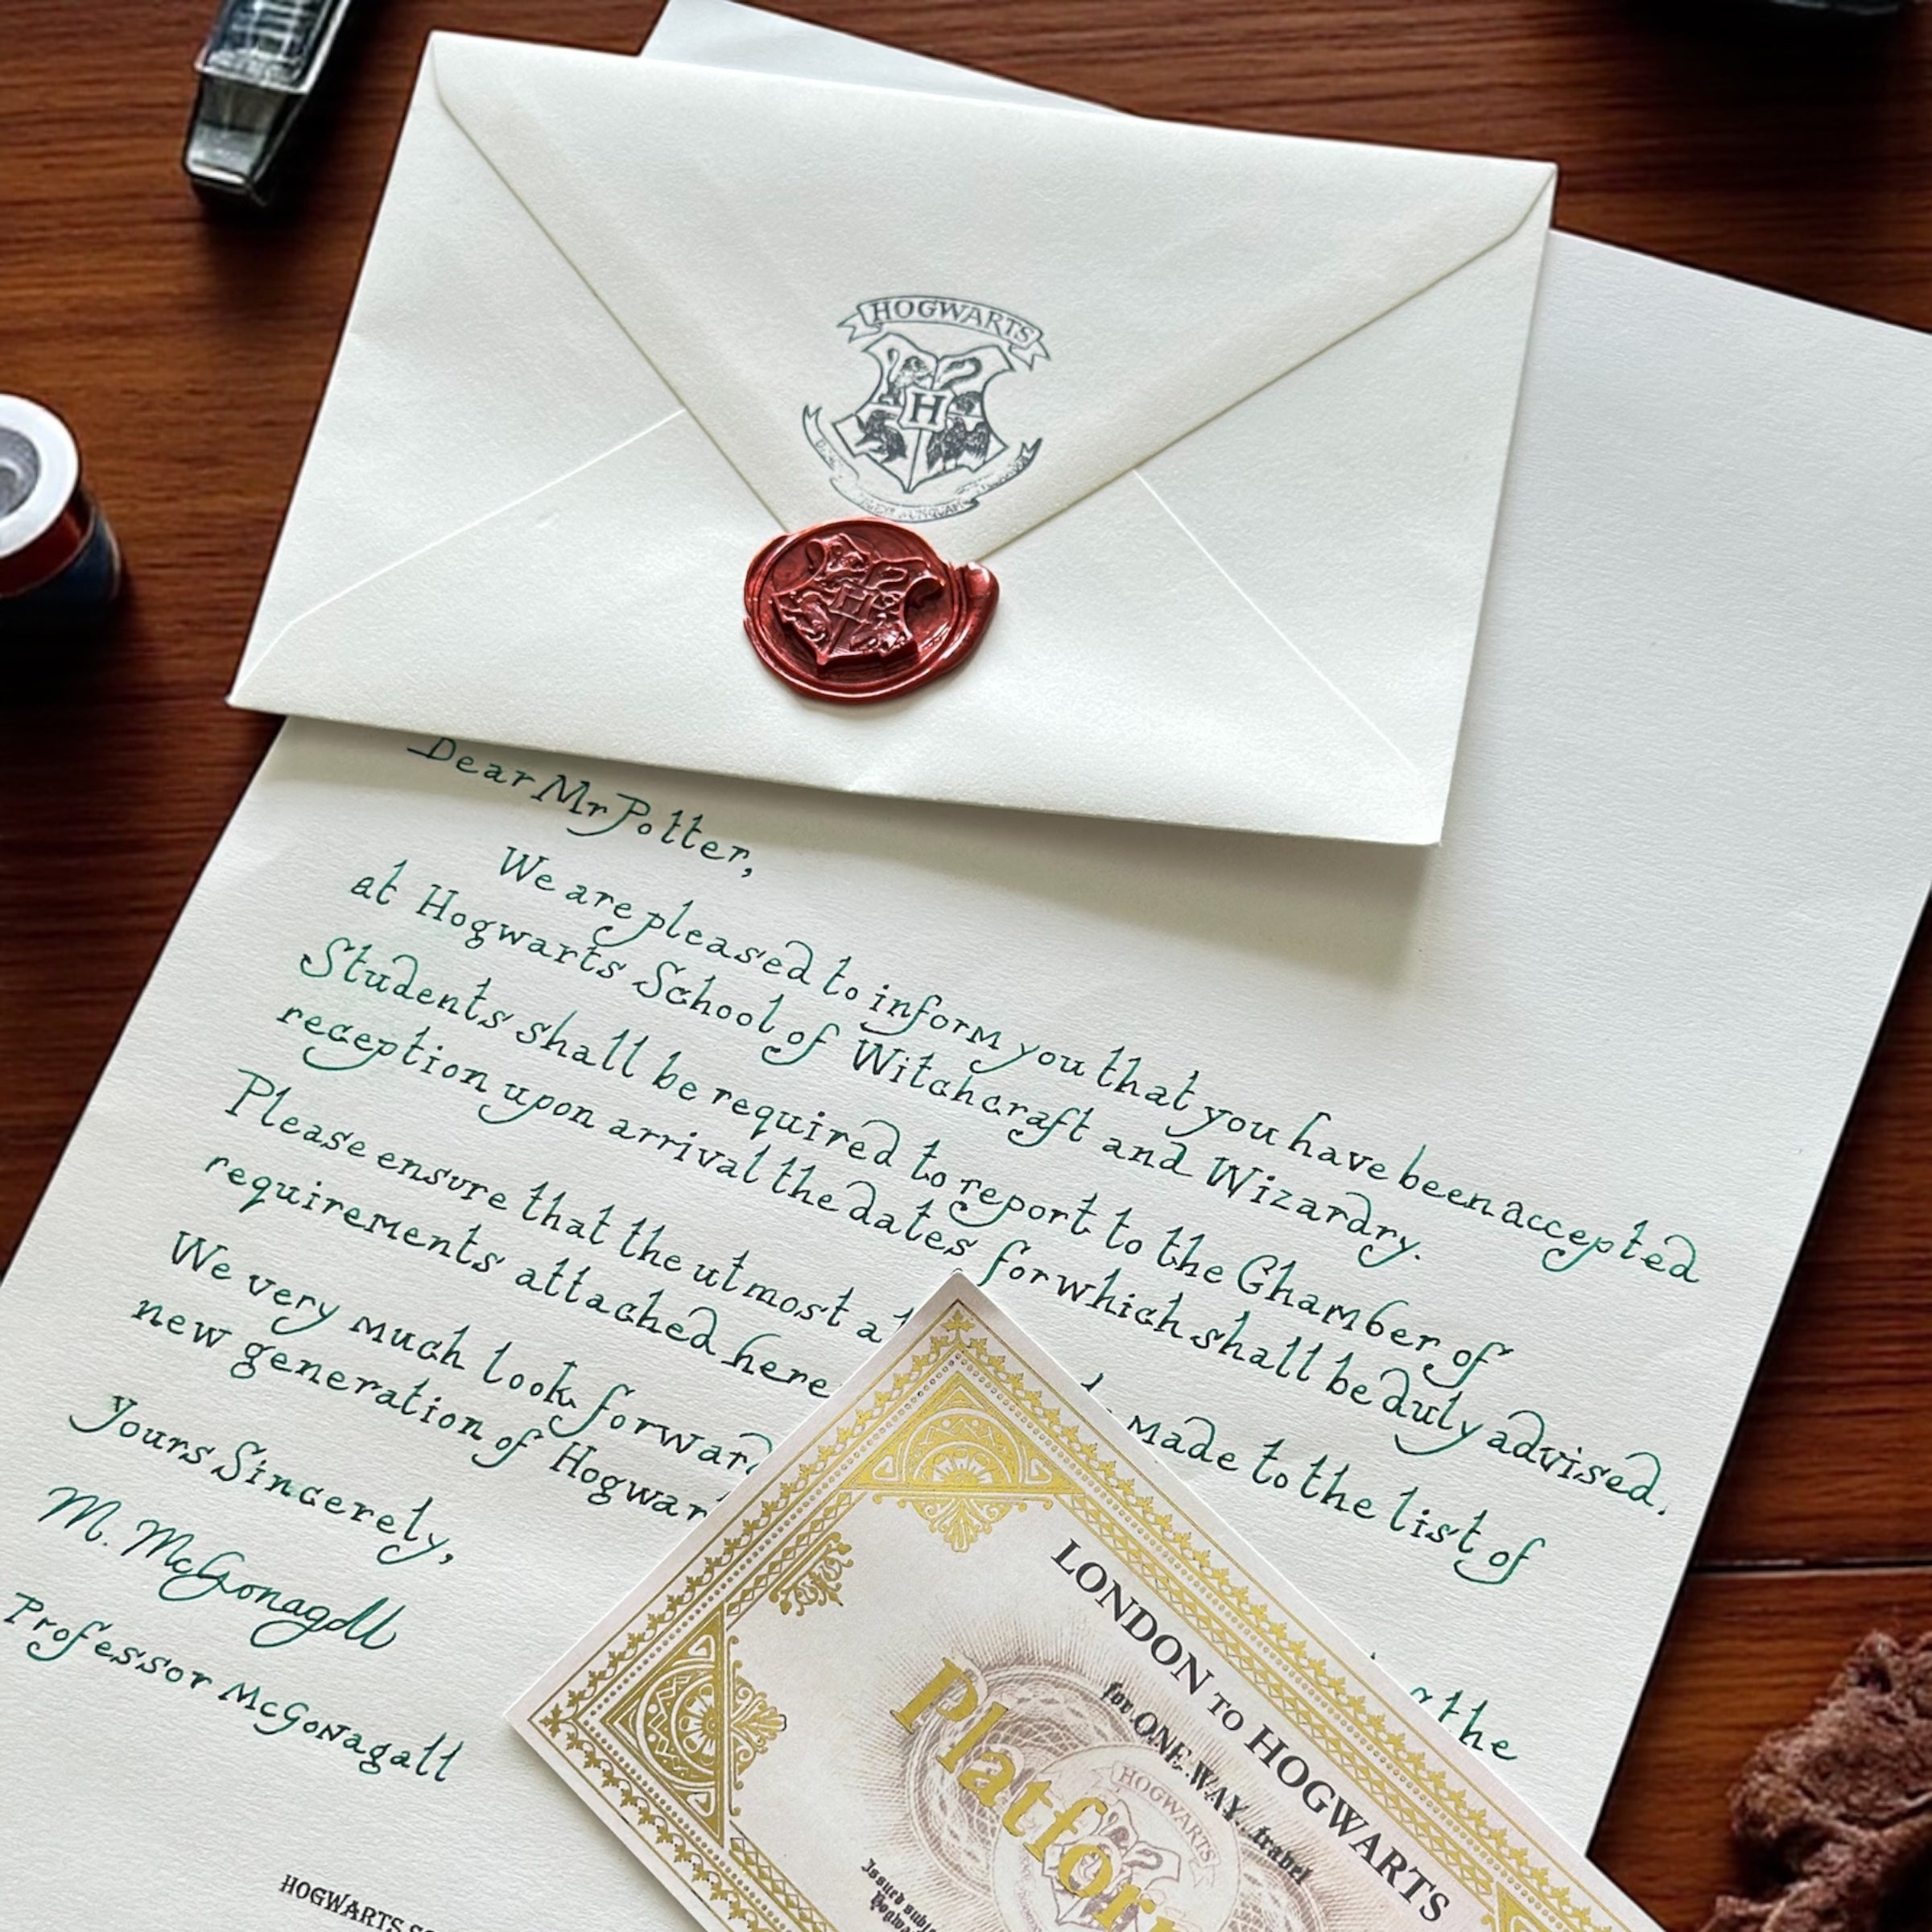 HOGWARTS
H
H
Dear Mr Potter,
We are pleased to inform you that you have been accepted
at Hogwarts School of Witchcraft and Wizardry.
Students shall be required to report to the Chamber of
reception upon arrival the dates for which shall be duly advised.
Please ensure that the utmost made to the list of
requirements attached here
We very much look forward the
new generation of
Yours Sincerely,
M. McGonagall
Professor McGonagall
LONDON TO HOGWARTS
for ONE WAY travel
HOGWARTS
Issued
HOGWARTS